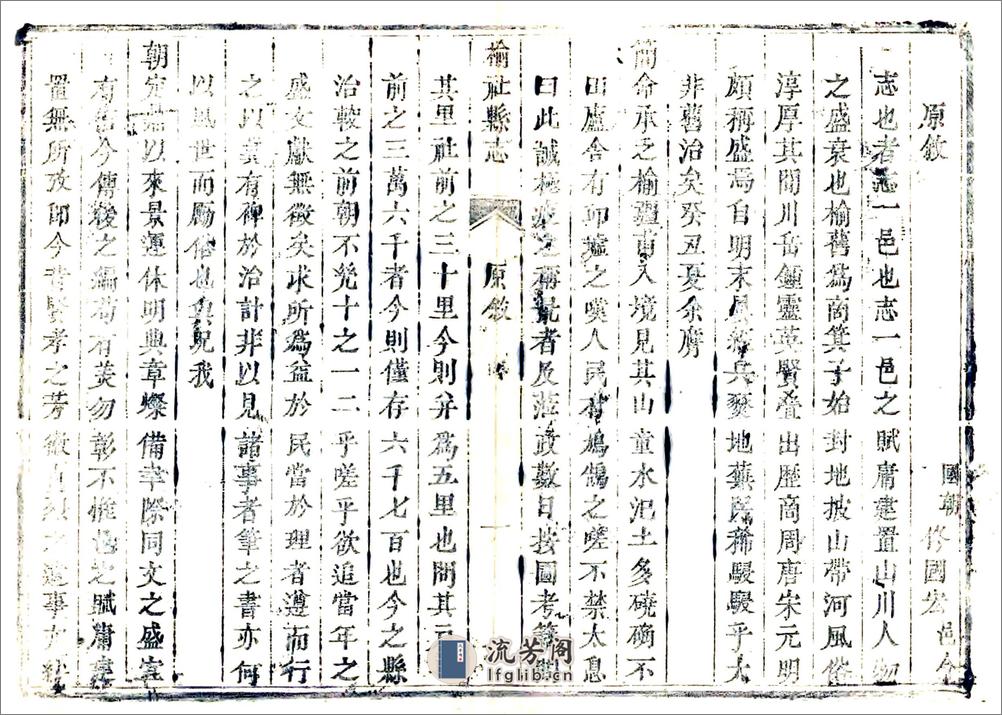 原敘
國朝 佟國宏 邑令
志也者志一邑也志一邑之賦庸建置山川人物
之盛衰也榆舊爲商箕子始封地披山帶河風俗
淳厚其間川岳鍾靈英賢叠出歷商周唐宋元明
頗稱盛焉自明末兵地蕪民稀駸駸乎大
非舊治矣癸丑夏余膺
簡命承乏榆疆甫入境見其山童水汜土多磽确不
田廬舍有邱墟之嘆人民有鳩鵠之嗟不禁太息
曰此誠極疲之者及蒞政數日按圖考籍
榆社縣志 原敘 一
其里社前之三十里今則弁爲五里也問其
前之三萬六千者今則僅存六千七百也今之縣
治較之前朝不凳十之一二乎嗟乎欲追當年之
盛文獻無徵矣求所爲益於民當於理者遵而行
之以其有裨於治計非以見諸事者筆之書亦何
以風世而勵俗也與况我
朝定鼎以來景運休明典章燦備幸際同文之盛
有古今傳後之編苟有美勿彰不惟邑之賦庸建
置無所攷即今昔賢孝之芳徽之遺事
流芳阁
lfglib.cn